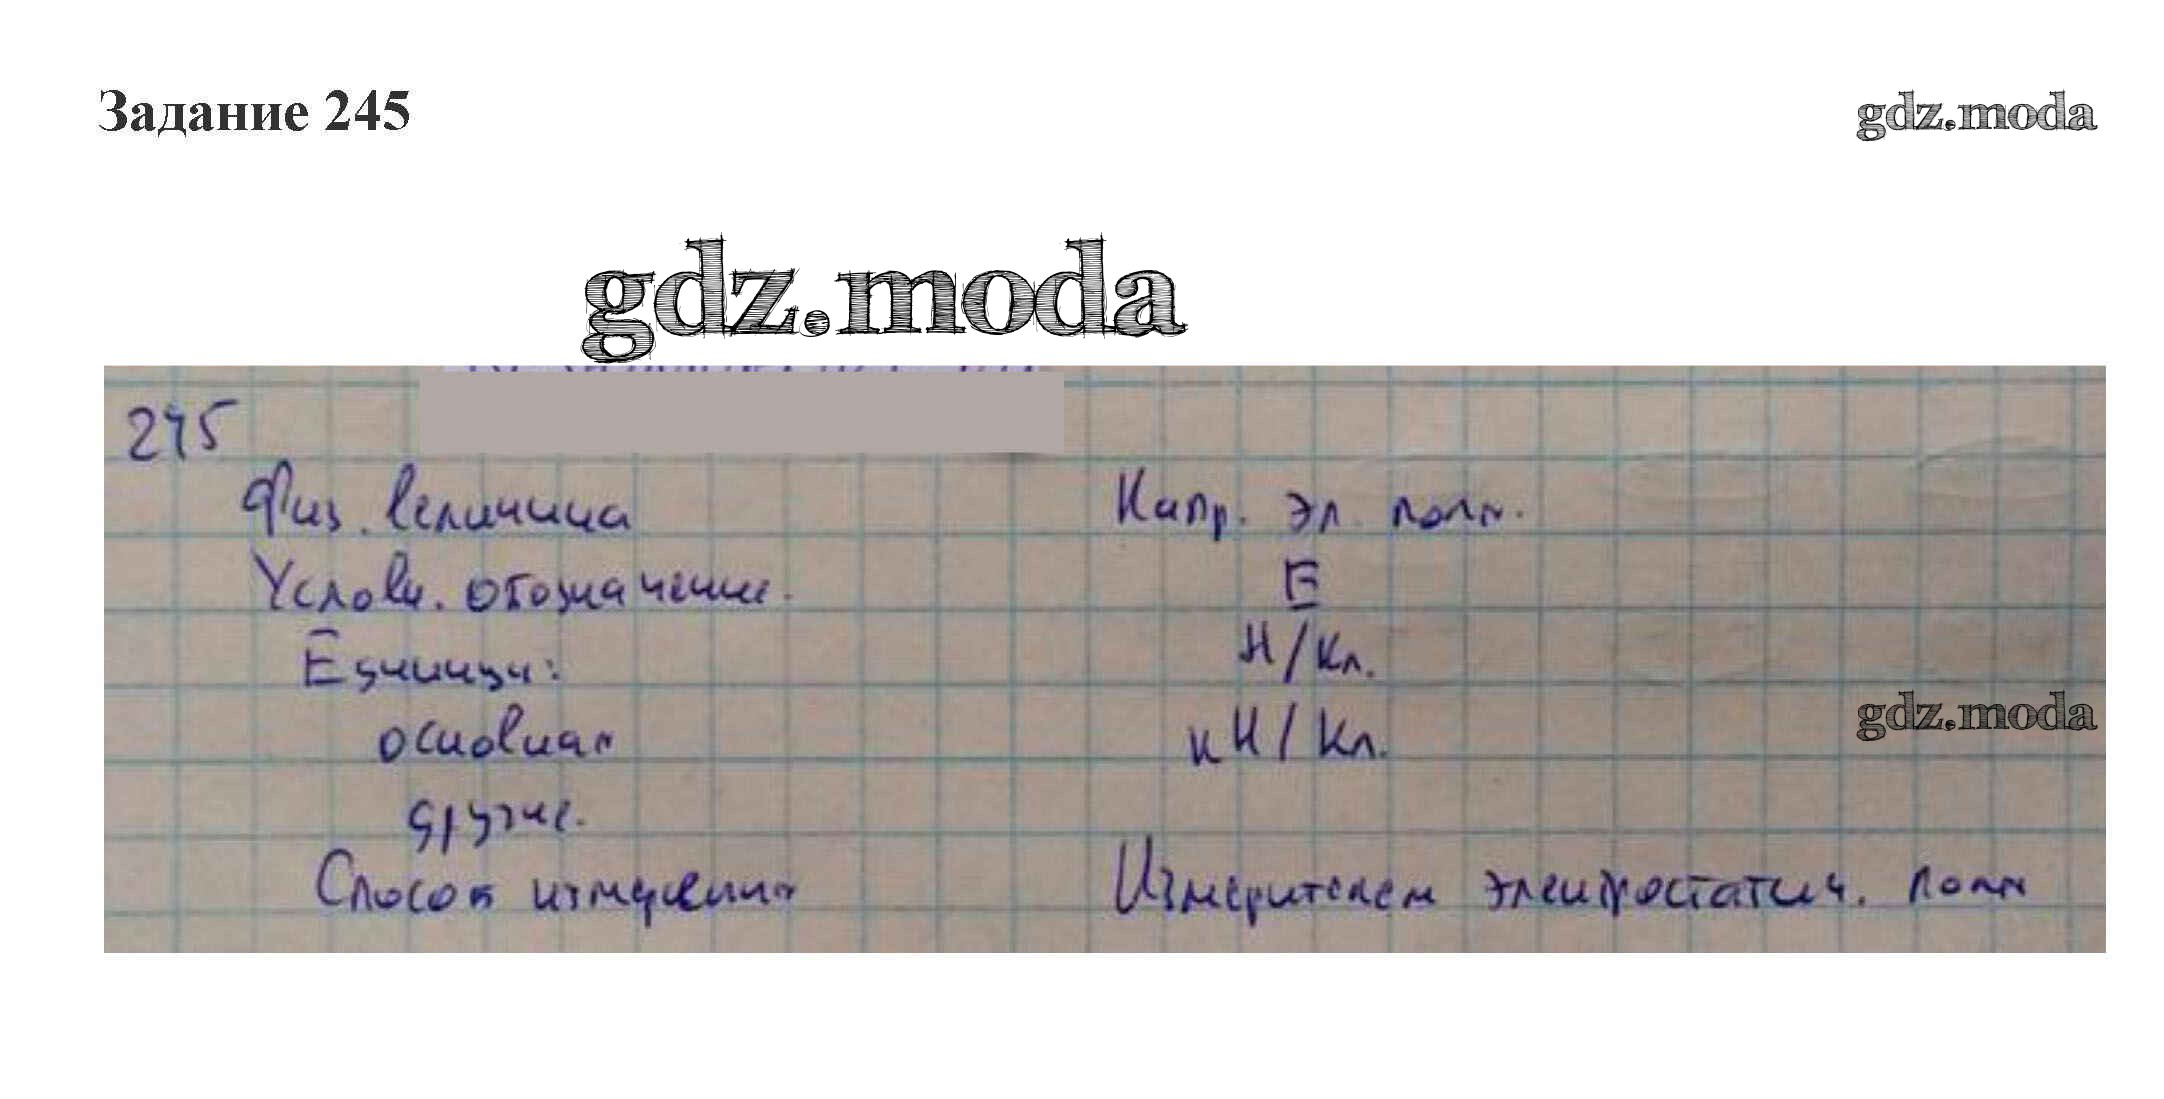 Задание 245
gdz.moda
gdz.moda
245
Физ. величина Напр. эл. поля.
Условн. обозначение. E
Единицы: Н/Кл.
основная кН/Кл.
gdz.moda
другие.
Способ измерения Измерителем электростатич. поля